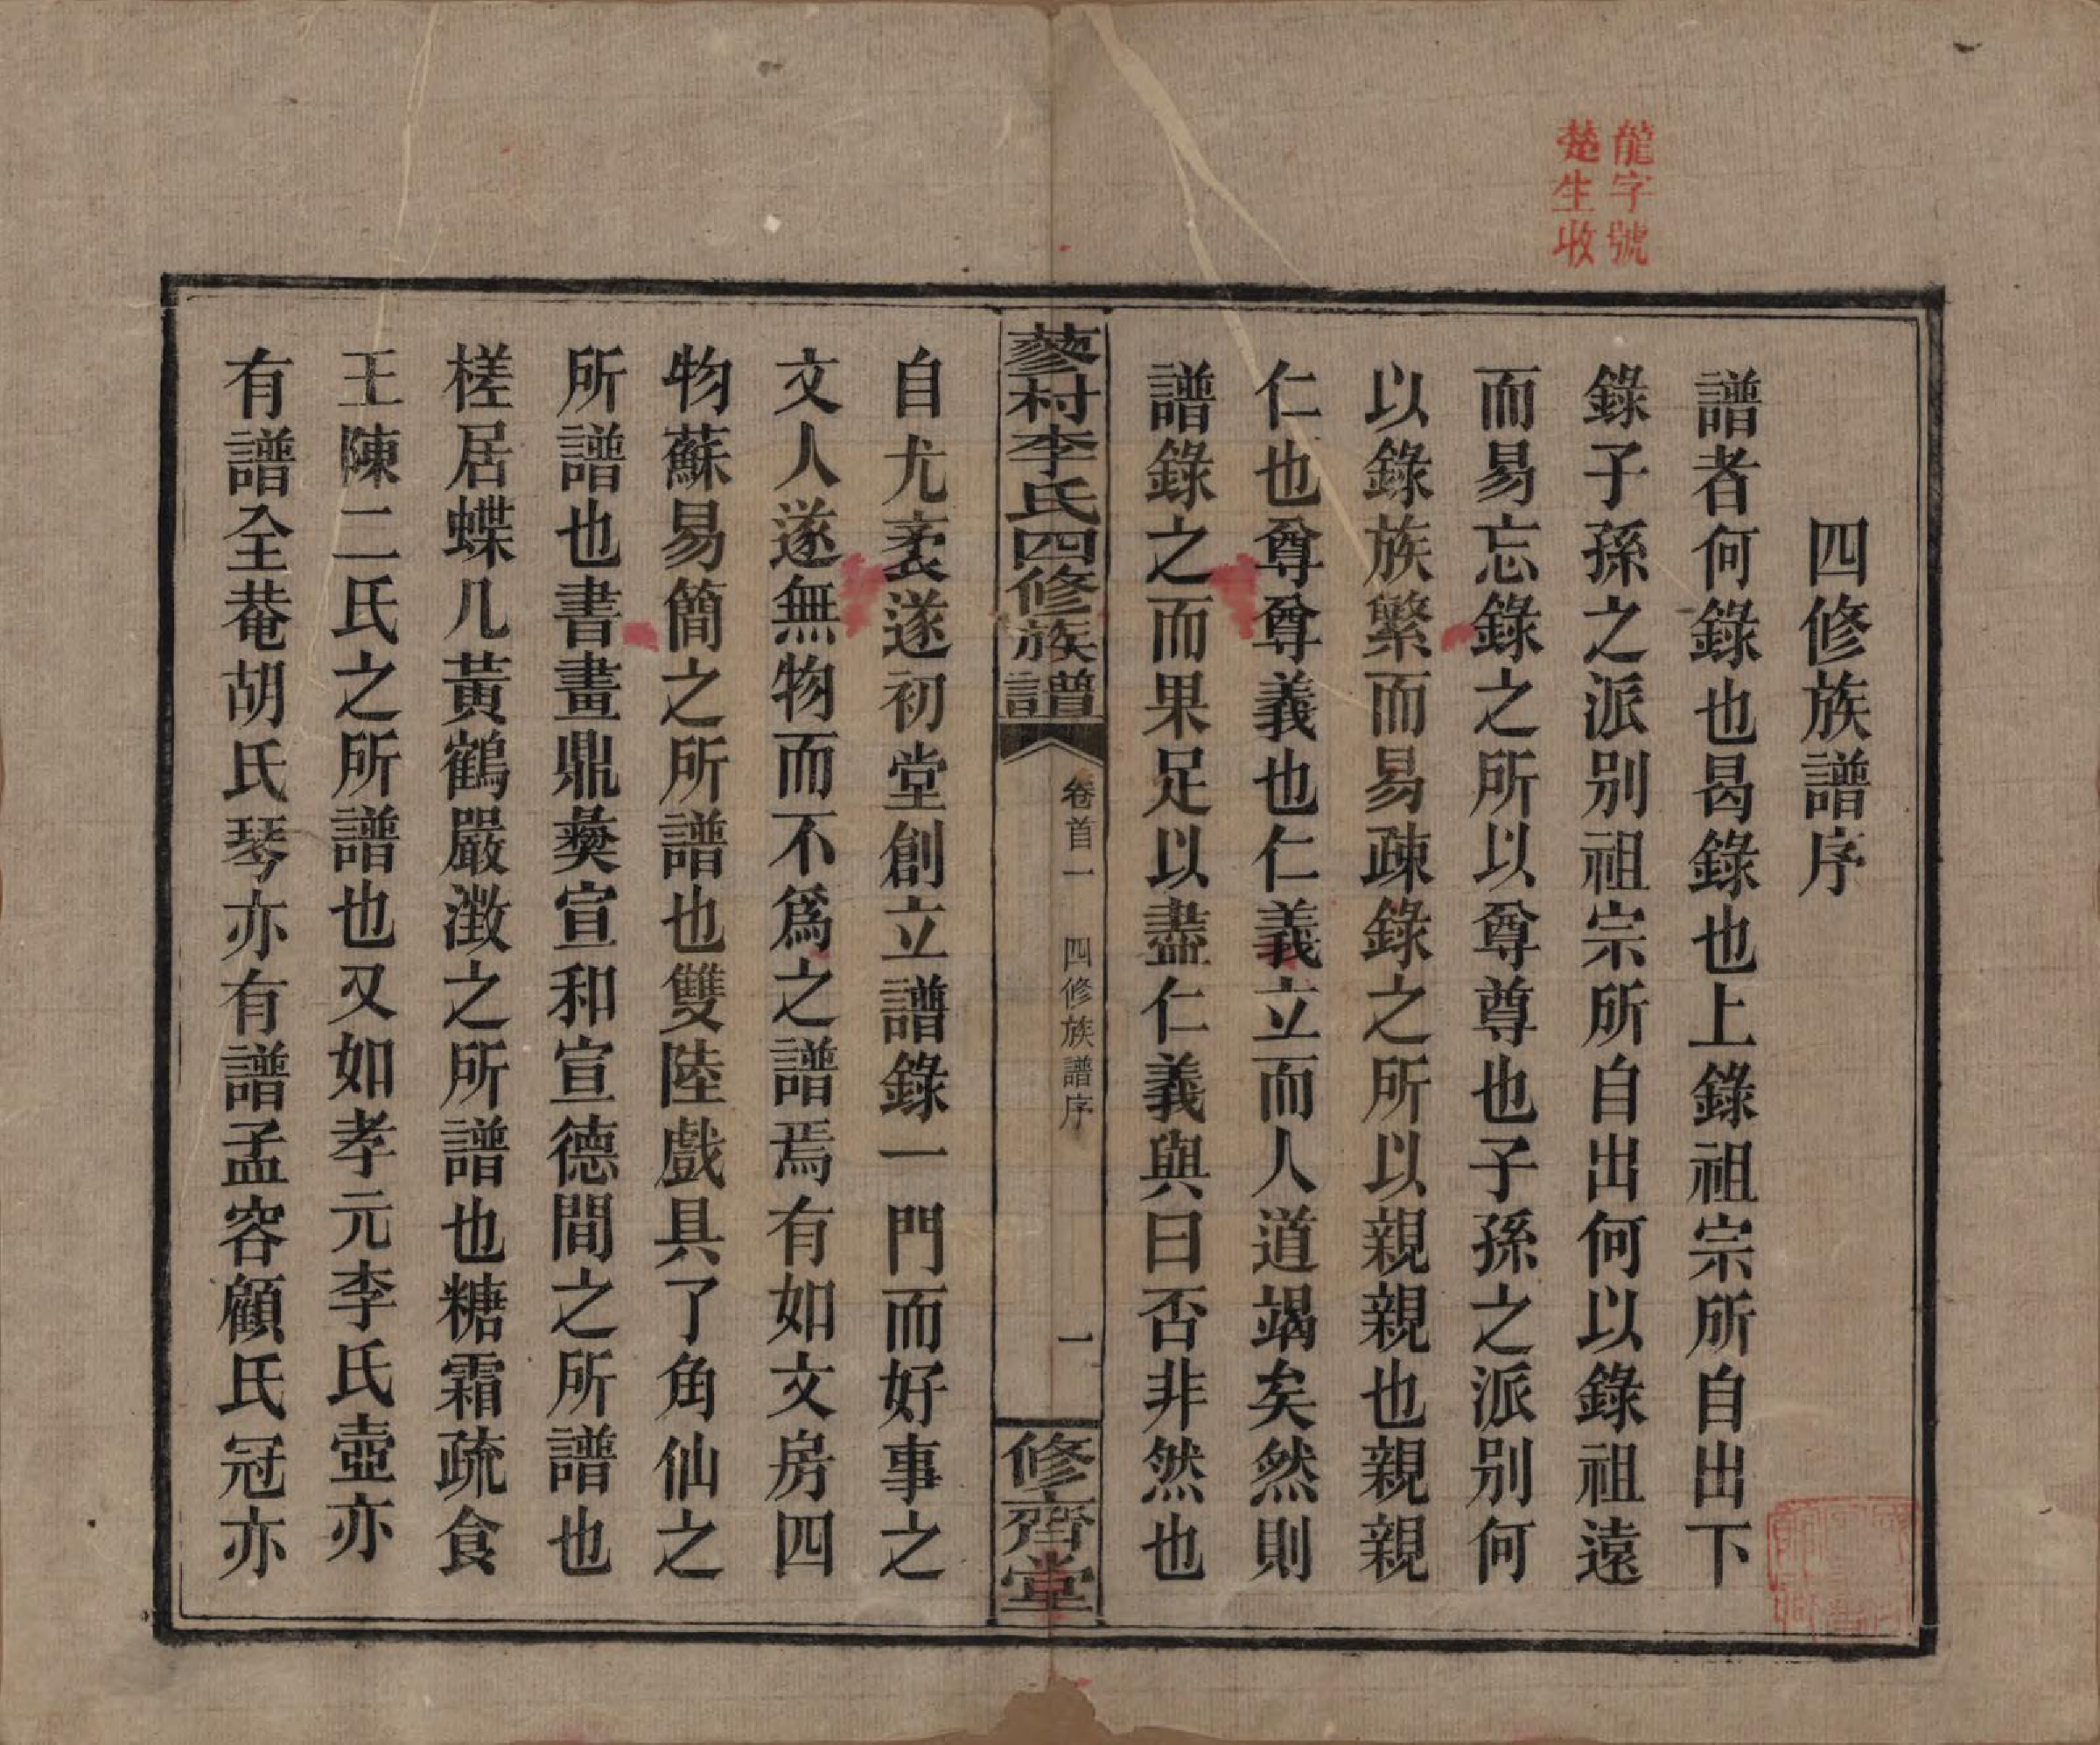 龍字號
楚生收
四修族譜序
譜者何錄也曷錄也上錄祖宗所自出下
錄子孫之派別祖宗所自出何以錄祖遠
而易忘錄之所以尊尊也子孫之派別何
以錄族繁而易疎錄之所以親親也親親
仁也尊尊義也仁義立而人道竭矣然則
譜錄之而果足以盡仁義與曰否非然也
蓼村李氏四修族譜
卷首一 四修族譜序
一
修齊堂
自尤袤遂初堂創立譜錄一門而好事之
文人遂無物而不爲之譜焉有如文房四
物蘇易簡之所譜也雙陸戲具了角仙之
所譜也書畫鼎彝宣和宣德間之所譜也
槎居蝶几黃鶴嚴澂之所譜也糖霜疏食
王陳二氏之所譜也又如孝元李氏壺亦
有譜全菴胡氏琴亦有譜孟容顧氏冠亦